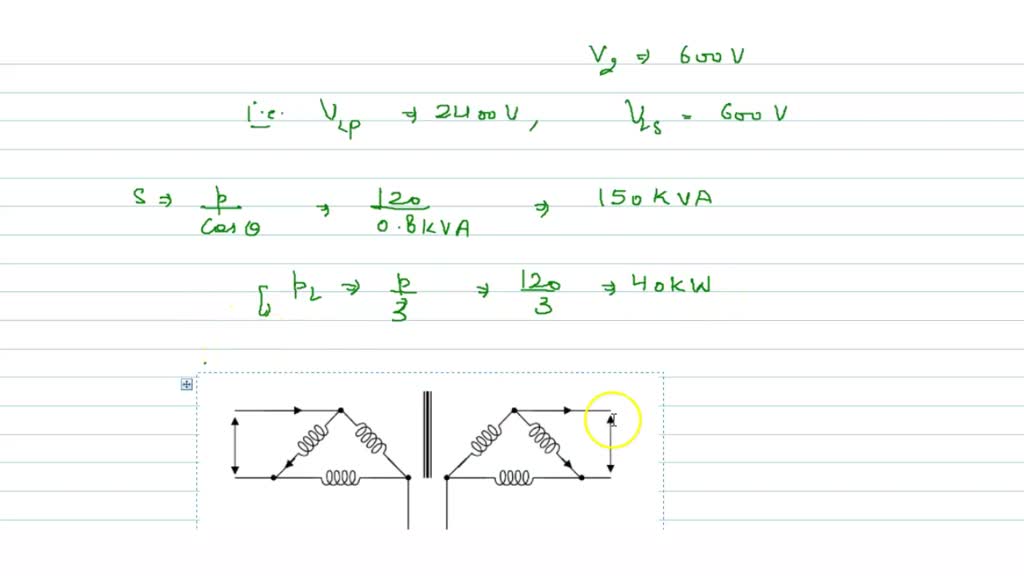 V2 ⇒ 600V
i.e. VLP ⇒ 2400V, VLS = 600V
S ⇒ P/cosθ ⇒ 120/0.8KVA ⇒ 150KVA
PL ⇒ P/3 ⇒ 120/3 ⇒ 40KW